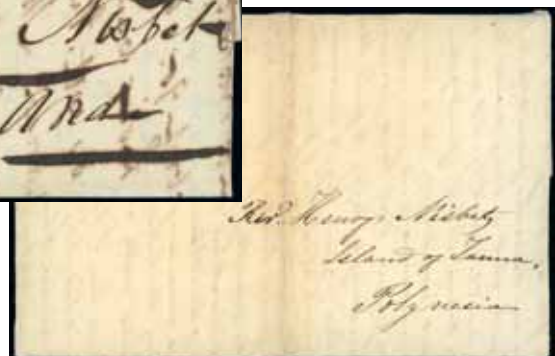 Nisbet
and
Revd. Henry Nisbet,
Island of Tanna,
Polynesia